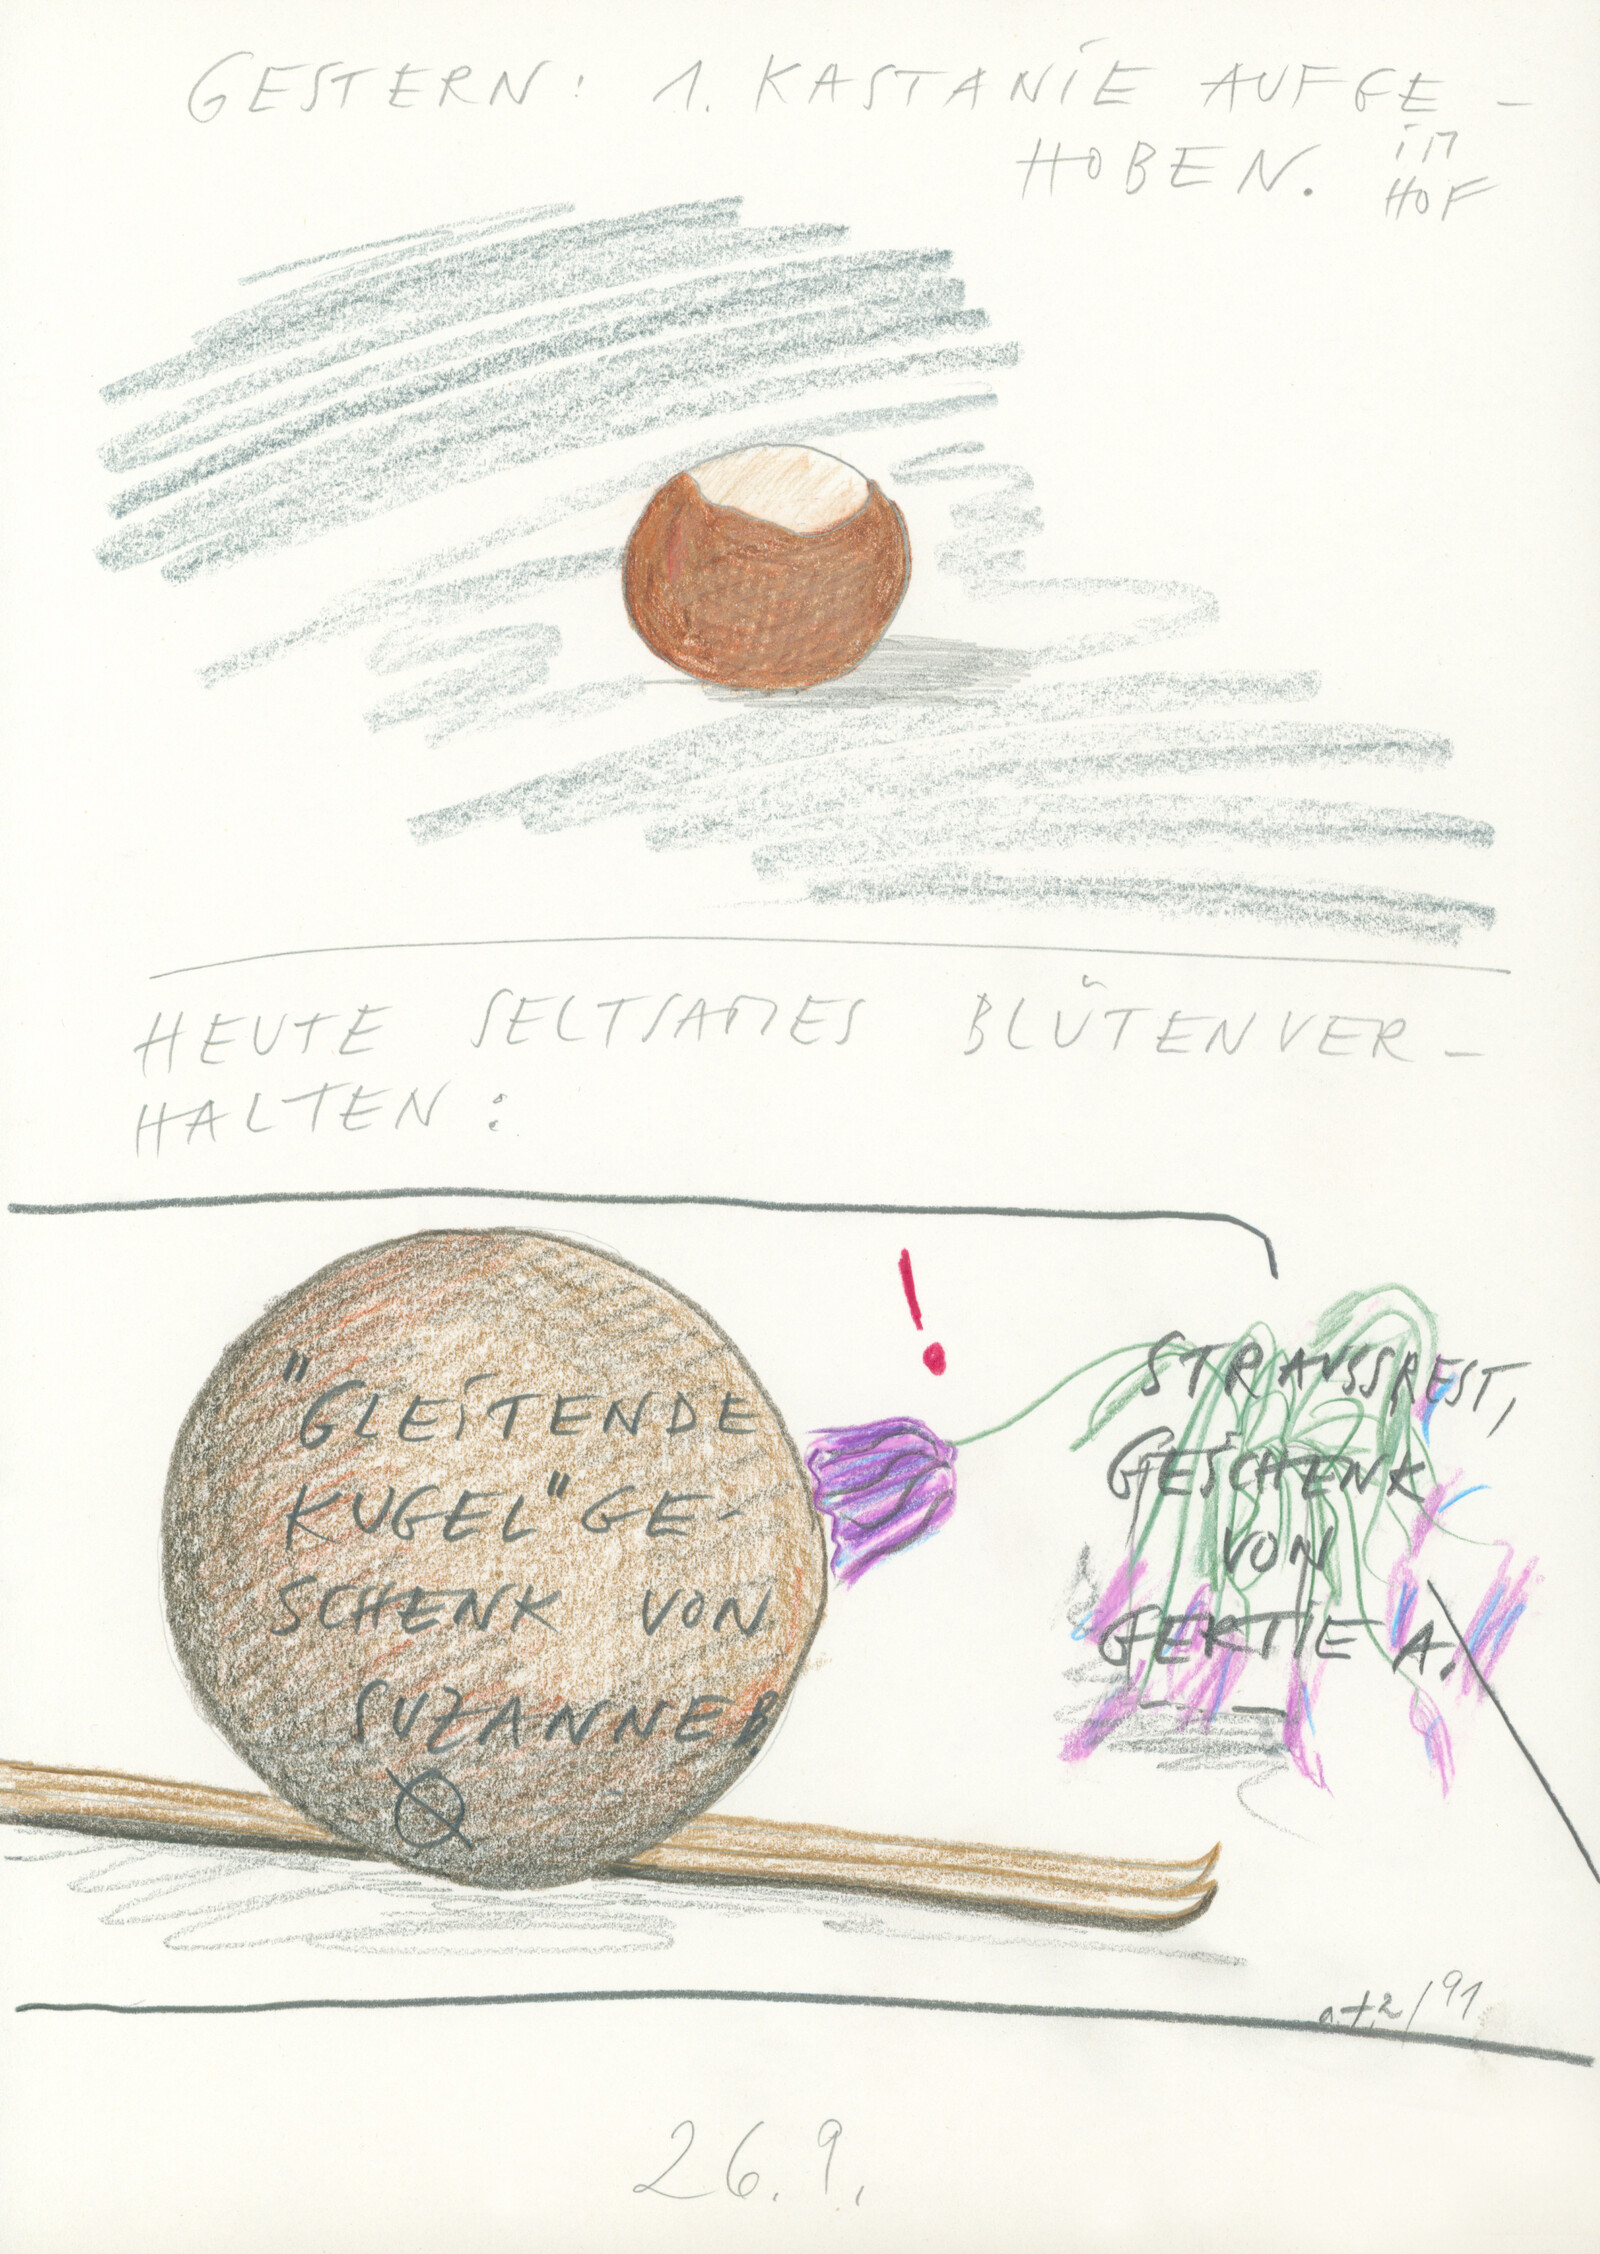 GESTERN: 1. KASTANIE AUFGE-
HOBEN. im
HOF
HEUTE SELTSAMES BLÜTENVER-
HALTEN:
"GLEITENDE
KUGEL" GE-
SCHENK VON
SUZANNE B.
STRAUSSREST,
GESCHENK
VON
GERTIE A.
/91
26.9.